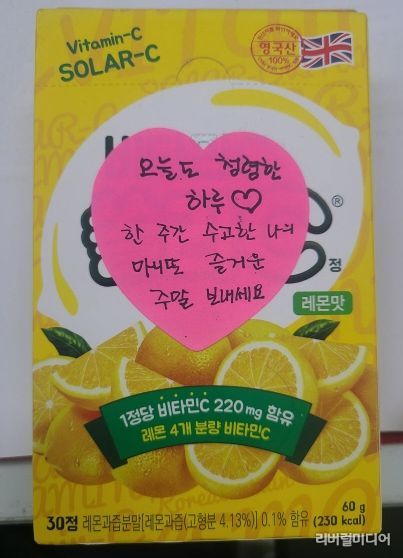 Vitamin-C
SOLAR-C
영국산
100%
오늘도 청렴한
하루♡
한 주간 수고한 나의
마니또 즐거운
주말 보내세요
®
정
레몬맛
1정당 비타민C 220 mg 함유
레몬 4개 분량 비타민C
30정 레몬과즙분말[레몬과즙(고형분 4.13%)] 0.1% 함유
60 g
(230 kcal)
리버럴미디어